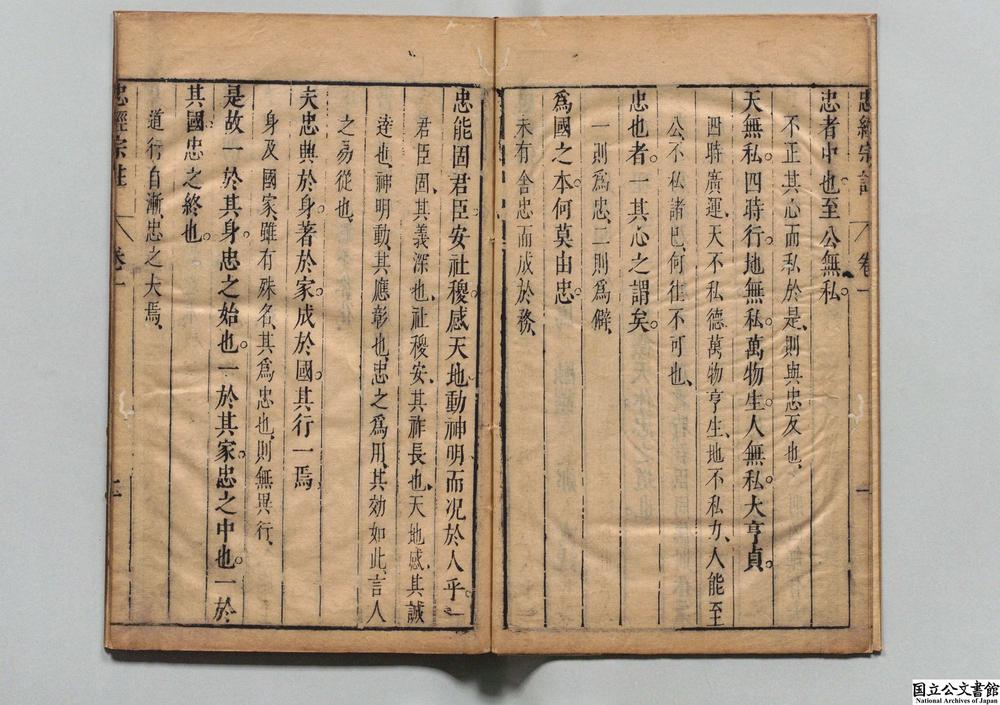 忠經宗註 卷一 一
忠者中也至公無私
不正其心而私於是則與忠反也
天無私四時行地無私萬物生人無私大亨貞
四時廣運天不私德萬物亨生地不私力人能至
公不私諸已何徃不可也
忠也者一其心之謂矣
一則爲忠二則爲僻
爲國之本何莫由忠
未有舍忠而成於務
忠能固君臣安社稷感天地動神明而况於人乎
君臣固其義深也社稷安其祚長也天地感其誠
逹也神明動其應彰也忠之爲用其効如此言人
之易從也
夫忠興於身著於家成於國其行一焉
身及國家雖有殊名其爲忠也則無異行
是故一於其身忠之始也一於其家忠之中也一於
其國忠之終也
道行自漸忠之大焉
忠經宗註 卷一 二
国立公文書館
National Archives of Japan